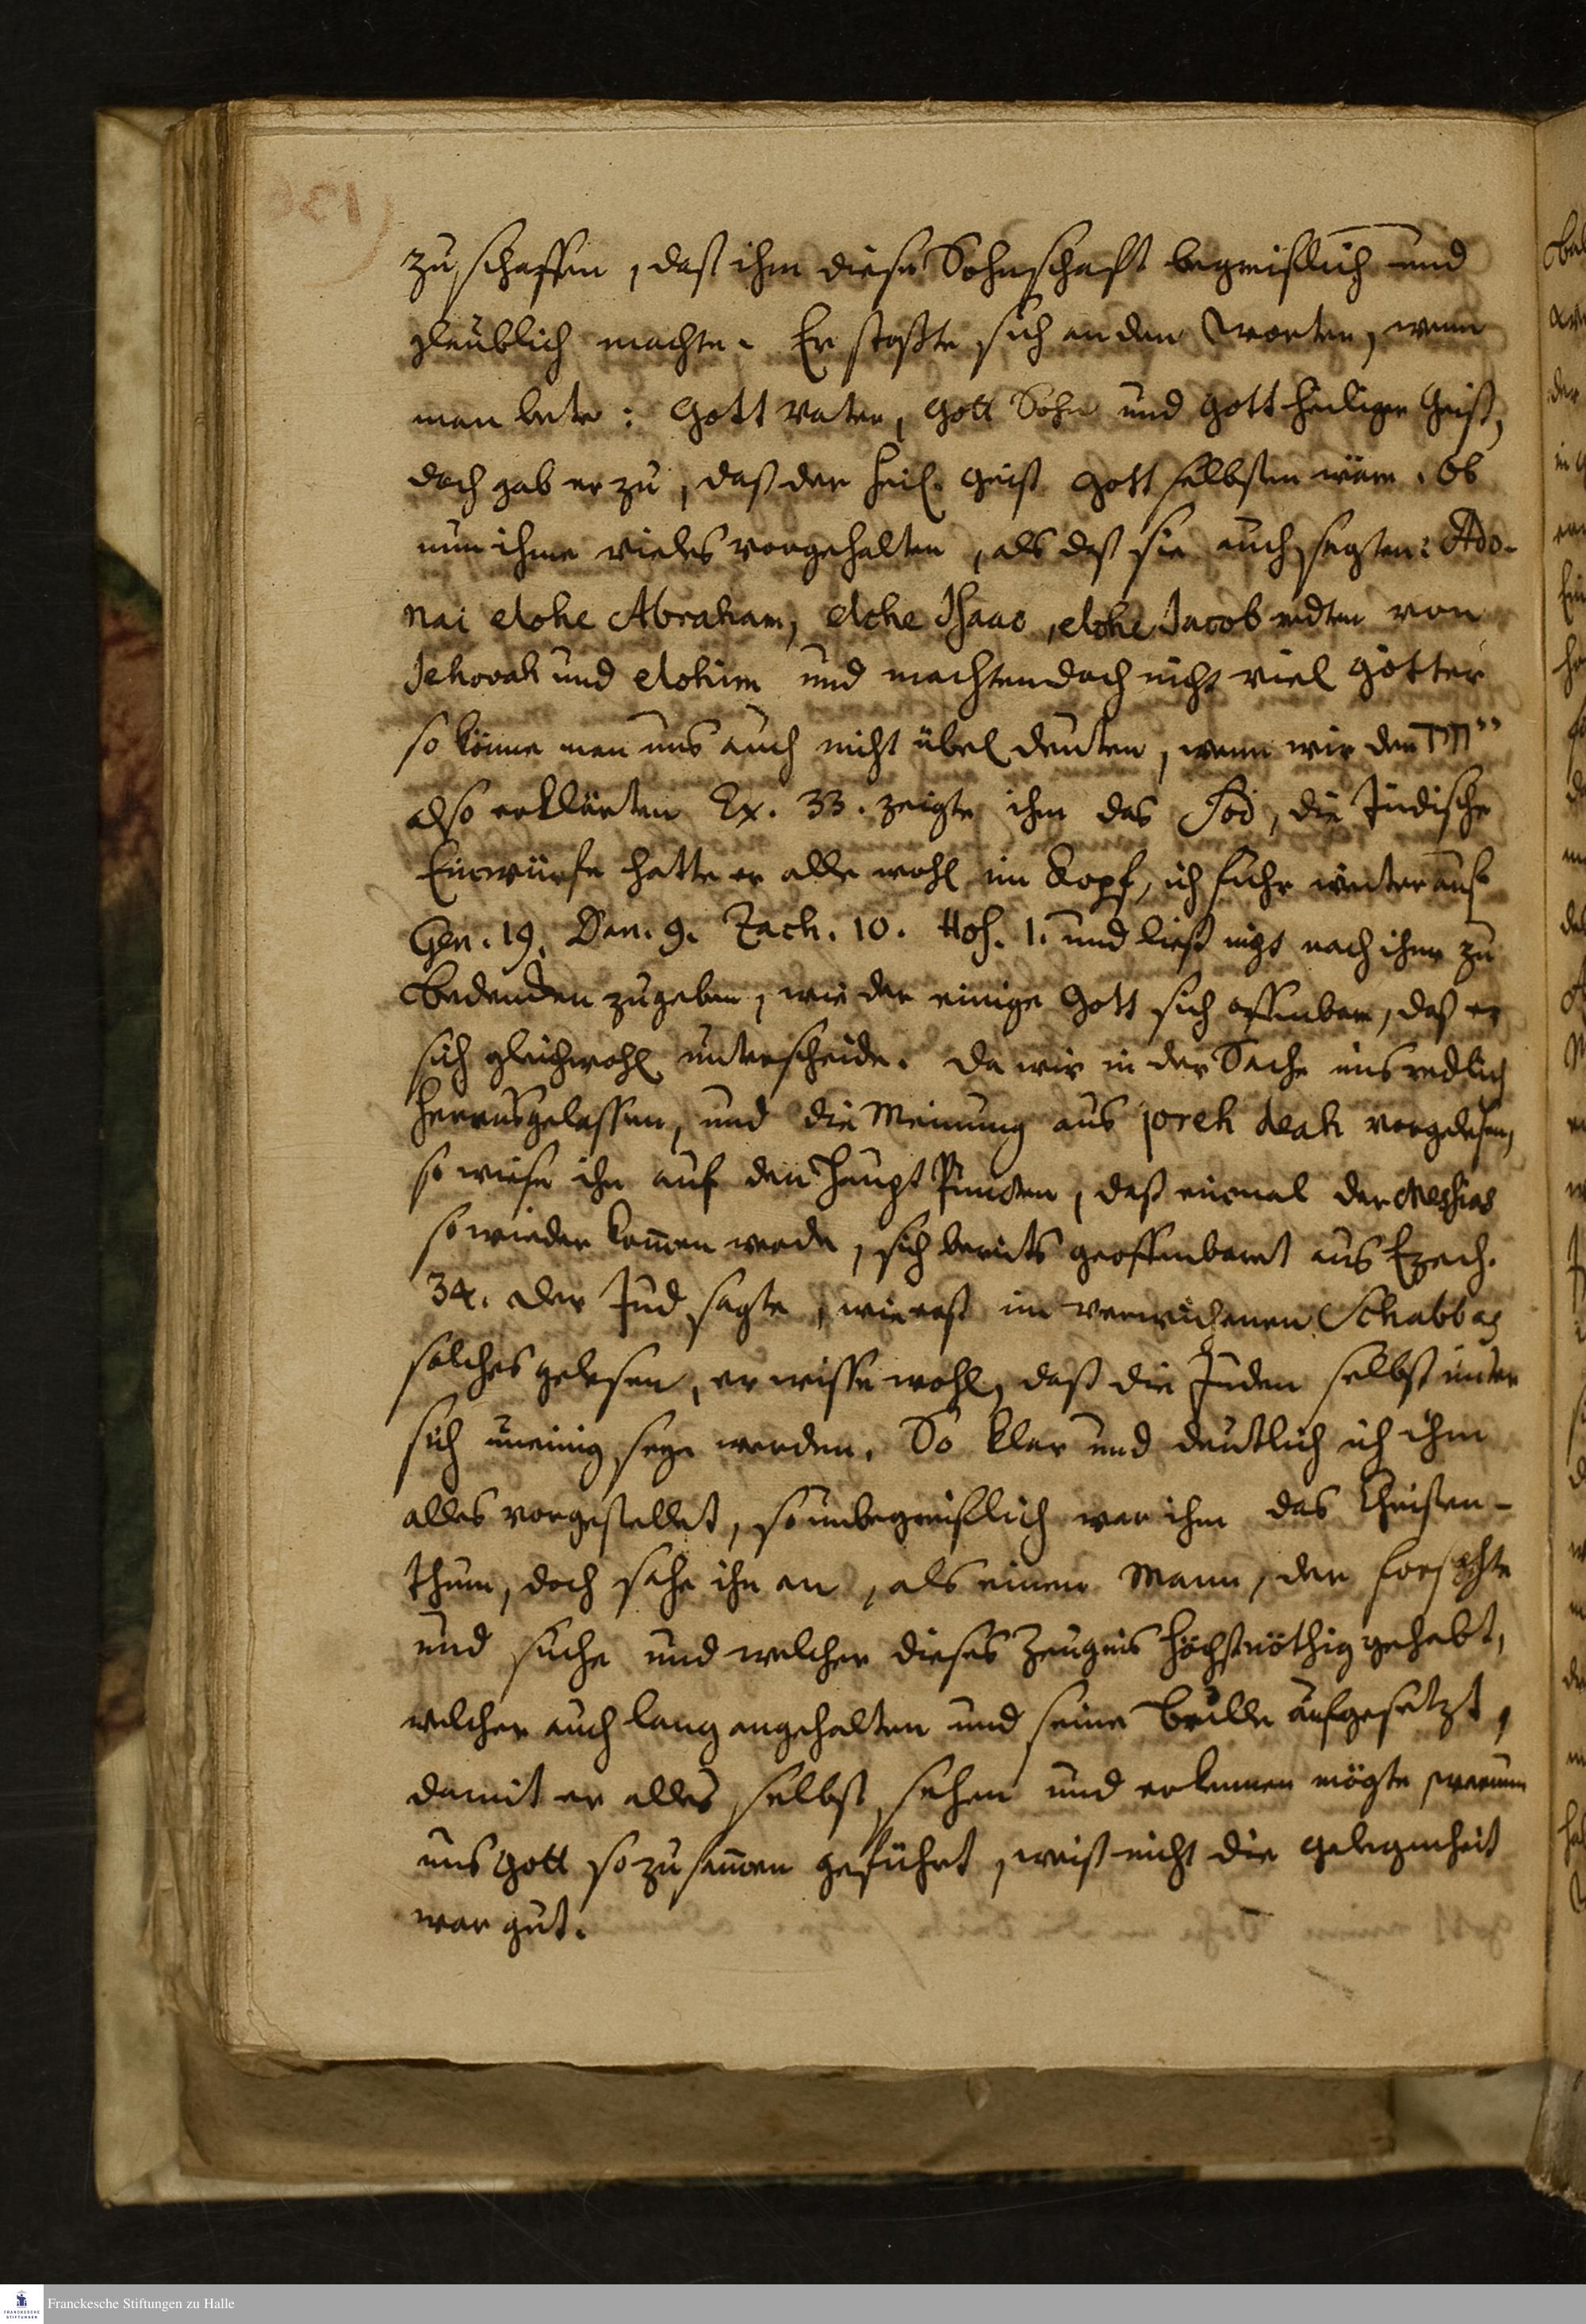 zu schaffen, daß ihm diese Sohnschafft begreiflich und
glaublich machte. Er stoßte sich an den Worten, wenn
man bete: Gott Vater, Gott Sohn und Gott heiliger Geist,
doch gab er zu, daß der heil. Geist Gott selbsten wäre. Ob
nun ihme vieles vorgehalten, als daß sie auch sagten: Ado-
nai elohe Abraham, elohe Isaac, elohe Jacob redten von
Jehovah und elohim und machten doch nicht viel Götter
so könne man uns auch nicht übel deuten, wenn wir den
also erklärten Ex. 33. zeigte ihm das Sod, die Jüdische
Einwürfe hatte er alle wohl im Kopf, ich fuhr weiter aus
Gen. 19. Dan. 9. Zach. 10. Hos. 1. und ließ nicht nach ihme zu
bedencken zugeben, wie der einige Gott sich offenbare, daß er
sich gleichwohl unterscheide. Da wir in der Sache uns redlich
herausgelassen, und die Meinung aus joreh deah vorgelesen,
so wiese ihn auf den Haupt Puncten, daß einmal der Messias
so wieder kommen werde, sich bereits geoffenbaret aus Ezech.
34. Der Jud sagte, wie erst im verwichenen Schabbas
solches gelesen, er wisse wohl, daß die Juden selbst unter
sich uneinig seyn werden. So klar und deutlich ich ihm
alles vorgestellet, so unbegreiflich war ihm das Christen-
thum, doch sahe ihn an, als einen Mann, der forschte
und suche und welcher dieses Zeugnis höchstnöthig gehabt,
welcher auch lang angehalten und seine Brille aufgesetzt,
damit er alles selbst sehen und erkennen mögte warum
uns Gott so zusammen geführt, weiß nicht die Gelegenheit
war gut.
Franckesche Stiftungen zu Halle